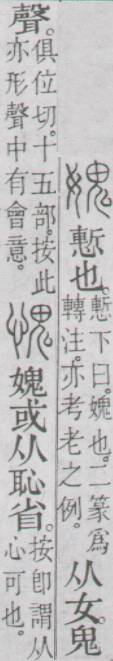 媿 慙也。慙下曰。媿也。二篆爲轉注。亦考老之例。从女。鬼
聲。俱位切。十五部。按此亦形聲中有會意。愧 媿或从恥省。按卽謂从心可也。